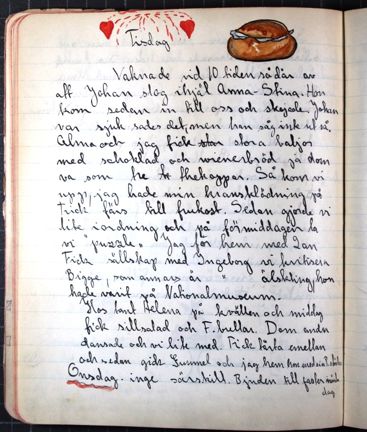 Tisdag
Vaknade vid 10 tiden sådär av
att Johan slog ihjäl Anna-Stina. Hon
kom sedan in till oss och skejade, Johan
var sjuk sades det, men han såg ink ut så.
Alma och jag fick stor stora baljor
med schoklad och wienerbröd på dom
va som tre te thekoppar. Så kom vi
upp, jag hade min klädning på
Fick färs till frukost. Sedan gjorde vi
lite iordning och på förmiddagen la
vi "puzzle". Jag för hem med Dan
Fick sällskap med Ingeborg vi kritisera
Bigge, som annars är " älskling, hon
hade varit på Nationalmuseum.
Hos tant Helena på kvällen och middag
fick sillsalad och F. bullar. Dom andra
dansade och vi lite med. Fick tårta emellan
och sedan gick Gummel och jag hem
Onsdag. inge särskilt. Bjuden till
dag